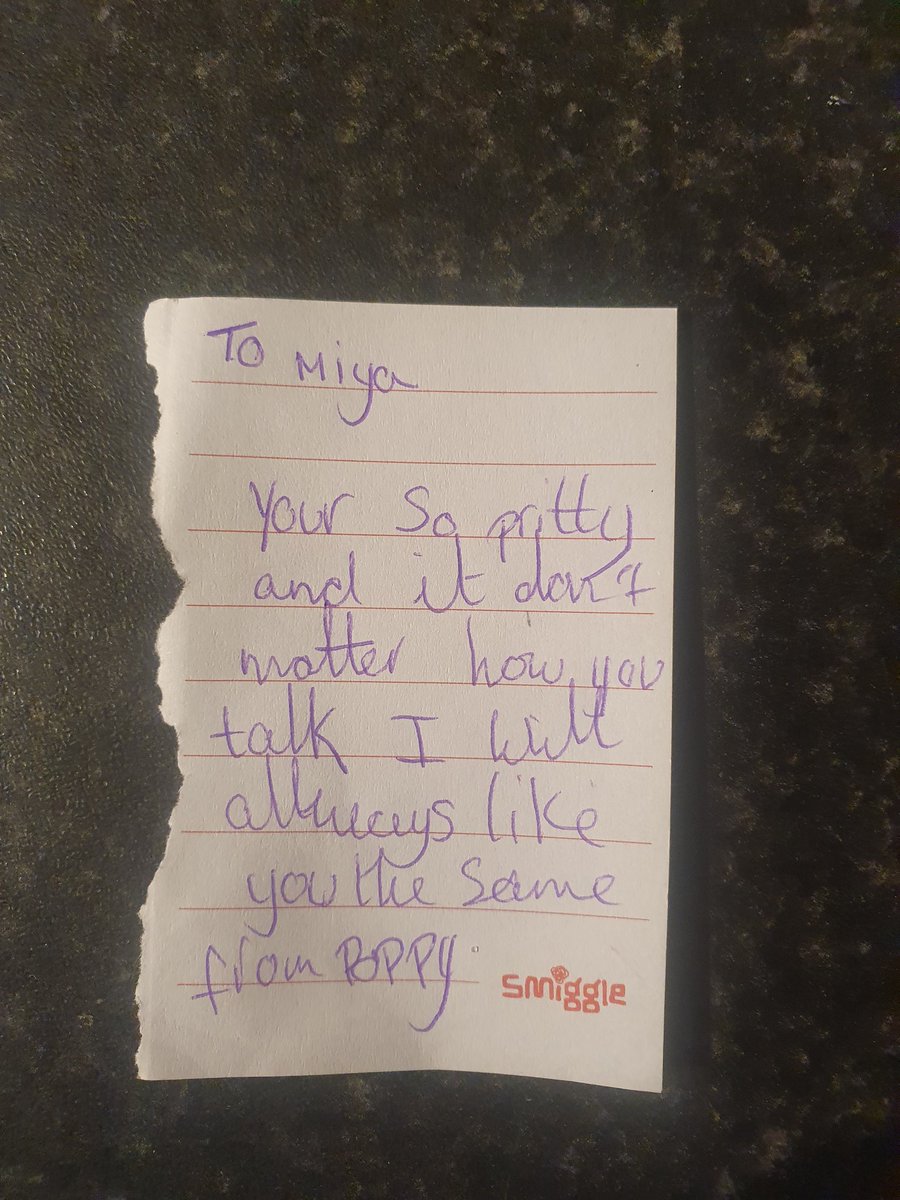 To Miya
Your So pritty
and it don't
matter how you
talk I will
allways like
you the same
from POPPY
smiggle